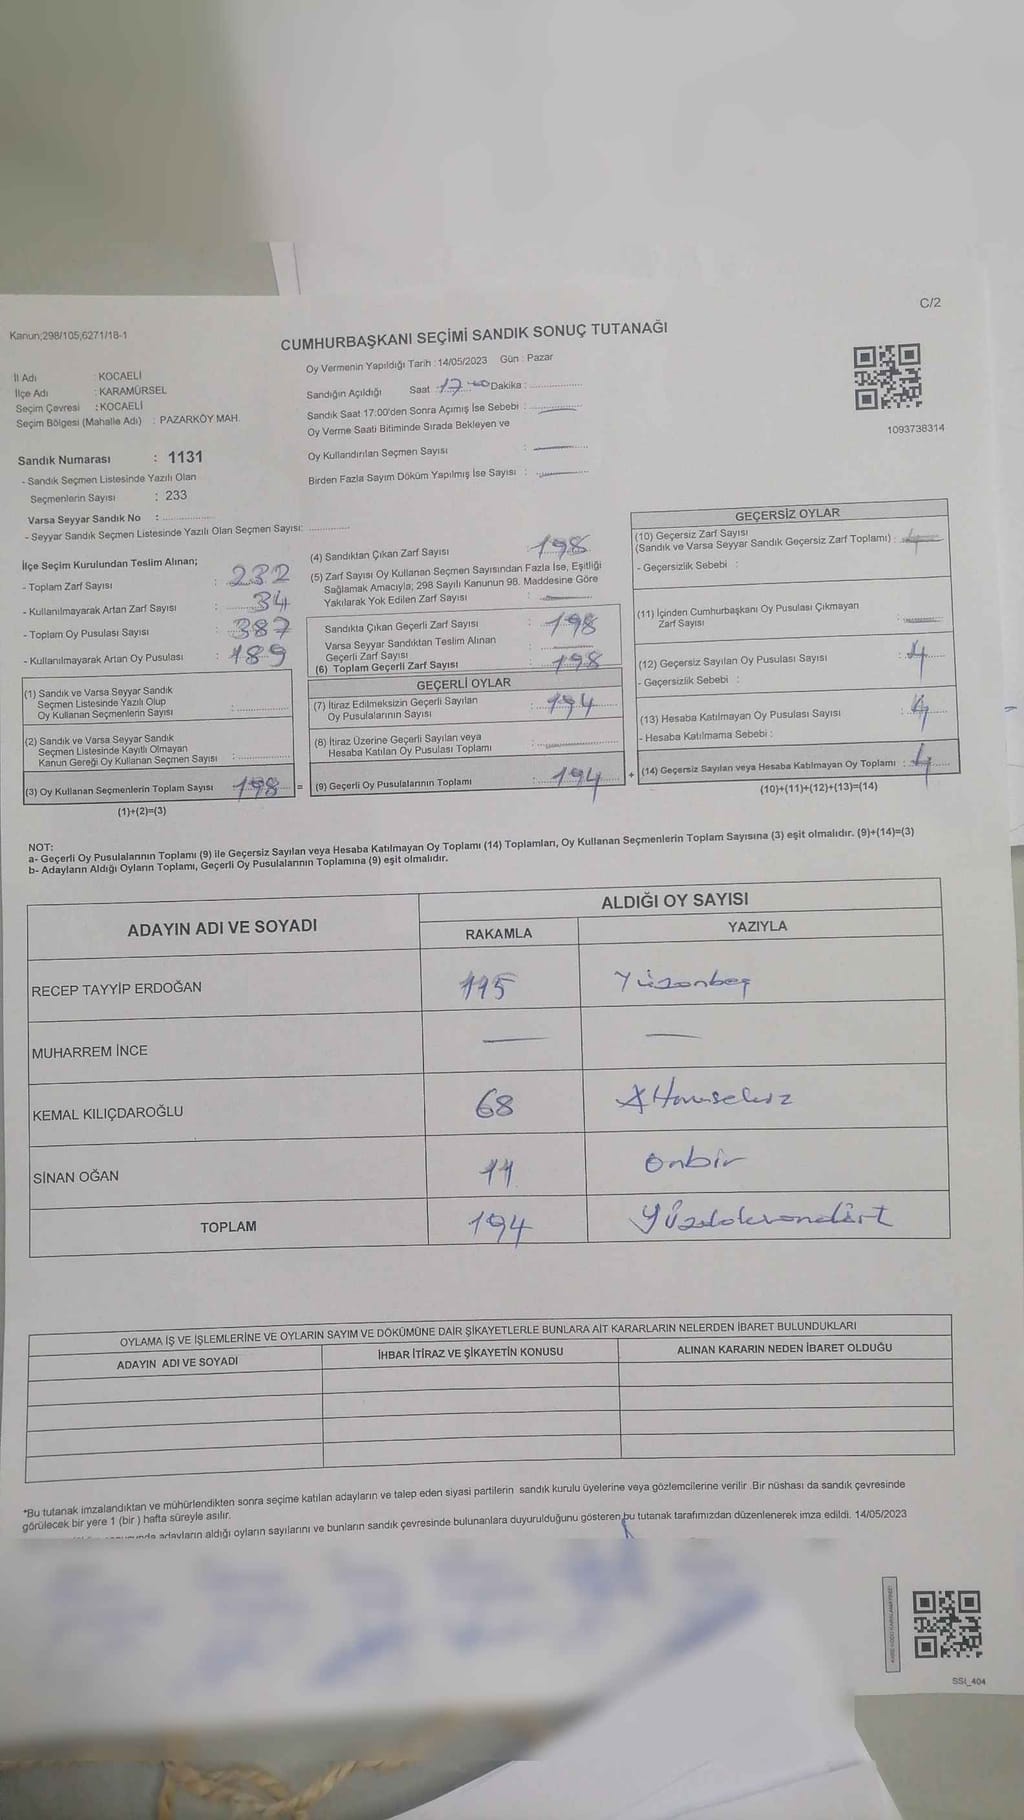 C/2
Kanun;298/105;6271/18-1
CUMHURBAŞKANI SEÇİMİ SANDIK SONUÇ TUTANAĞI
İl Adı : KOCAELİ
İlçe Adı : KARAMÜRSEL
Seçim Çevresi : KOCAELİ
Seçim Bölgesi (Mahalle Adı) : PAZARKÖY MAH.
Sandık Numarası : 1131
- Sandık Seçmen Listesinde Yazılı Olan
Seçmenlerin Sayısı : 233
Varsa Seyyar Sandık No : ..................
- Seyyar Sandık Seçmen Listesinde Yazılı Olan Seçmen Sayısı: ..............
Oy Vermenin Yapıldığı Tarih : 14/05/2023 Gün : Pazar
Sandığın Açıldığı Saat : 17.00 Dakika : ..................
Sandık Saat 17:00'den Sonra Açımış İse Sebebi : ..................
Oy Verme Saati Bitiminde Sırada Bekleyen ve
Oy Kullandırılan Seçmen Sayısı :
Birden Fazla Sayım Döküm Yapılmış İse Sayısı :
1093738314
İlçe Seçim Kurulundan Teslim Alınan;
- Toplam Zarf Sayısı : 232
- Kullanılmayarak Artan Zarf Sayısı : 34
- Toplam Oy Pusulası Sayısı : 387
- Kullanılmayarak Artan Oy Pusulası : 189
(1) Sandık ve Varsa Seyyar Sandık
Seçmen Listesinde Yazılı Olup
Oy Kullanan Seçmenlerin Sayısı : ..............
(2) Sandık ve Varsa Seyyar Sandık
Seçmen Listesinde Kayıtlı Olmayan
Kanun Gereği Oy Kullanan Seçmen Sayısı : ..............
(3) Oy Kullanan Seçmenlerin Toplam Sayısı 198 =
(1)+(2)=(3)
(4) Sandıktan Çıkan Zarf Sayısı : 198
(5) Zarf Sayısı Oy Kullanan Seçmen Sayısından Fazla İse, Eşitliği
Sağlamak Amacıyla; 298 Sayılı Kanunun 98. Maddesine Göre
Yakılarak Yok Edilen Zarf Sayısı :
Sandıkta Çıkan Geçerli Zarf Sayısı : 198
Varsa Seyyar Sandıktan Teslim Alınan
Geçerli Zarf Sayısı :
(6) Toplam Geçerli Zarf Sayısı : 198
GEÇERLİ OYLAR
(7) İtiraz Edilmeksizin Geçerli Sayılan
Oy Pusulalarının Sayısı : 194
(8) İtiraz Üzerine Geçerli Sayılan veya
Hesaba Katılan Oy Pusulası Toplamı :
(9) Geçerli Oy Pusulalarının Toplamı : 194 +
GEÇERSİZ OYLAR
(10) Geçersiz Zarf Sayısı
(Sandık ve Varsa Seyyar Sandık Geçersiz Zarf Toplamı) :
- Geçersizlik Sebebi :
(11) İçinden Cumhurbaşkanı Oy Pusulası Çıkmayan
Zarf Sayısı :
(12) Geçersiz Sayılan Oy Pusulası Sayısı : 4
- Geçersizlik Sebebi :
(13) Hesaba Katılmayan Oy Pusulası Sayısı : 4
- Hesaba Katılmama Sebebi :
(14) Geçersiz Sayılan veya Hesaba Katılmayan Oy Toplamı : 4
(10)+(11)+(12)+(13)=(14)
NOT:
a- Geçerli Oy Pusulalarının Toplamı (9) ile Geçersiz Sayılan veya Hesaba Katılmayan Oy Toplamı (14) Toplamları, Oy Kullanan Seçmenlerin Toplam Sayısına (3) eşit olmalıdır. (9)+(14)=(3)
b- Adayların Aldığı Oyların Toplamı, Geçerli Oy Pusulalarının Toplamına (9) eşit olmalıdır.
ADAYIN ADI VE SOYADI ALDIĞI OY SAYISI
RAKAMLA YAZIYLA
RECEP TAYYİP ERDOĞAN 115 Yüzonbeş
MUHARREM İNCE — —
KEMAL KILIÇDAROĞLU 68
SİNAN OĞAN 11 Onbir
TOPLAM 194 Yüzdoksandört
OYLAMA İŞ VE İŞLEMLERİNE VE OYLARIN SAYIM VE DÖKÜMÜNE DAİR ŞİKAYETLERLE BUNLARA AİT KARARLARIN NELERDEN İBARET BULUNDUKLARI
ADAYIN ADI VE SOYADI İHBAR İTİRAZ VE ŞİKAYETİN KONUSU ALINAN KARARIN NEDEN İBARET OLDUĞU
*Bu tutanak imzalandıktan ve mühürlendikten sonra seçime katılan adayların ve talep eden siyasi partilerin sandık kurulu üyelerine veya gözlemcilerine verilir .Bir nüshası da sandık çevresinde
görülecek bir yere 1 (bir ) hafta süreyle asılır.
adayların aldığı oyların sayılarını ve bunların sandık çevresinde bulunanlara duyurulduğunu gösteren bu tutanak tarafımızdan düzenlenerek imza edildi. 14/05/2023
SSI_404